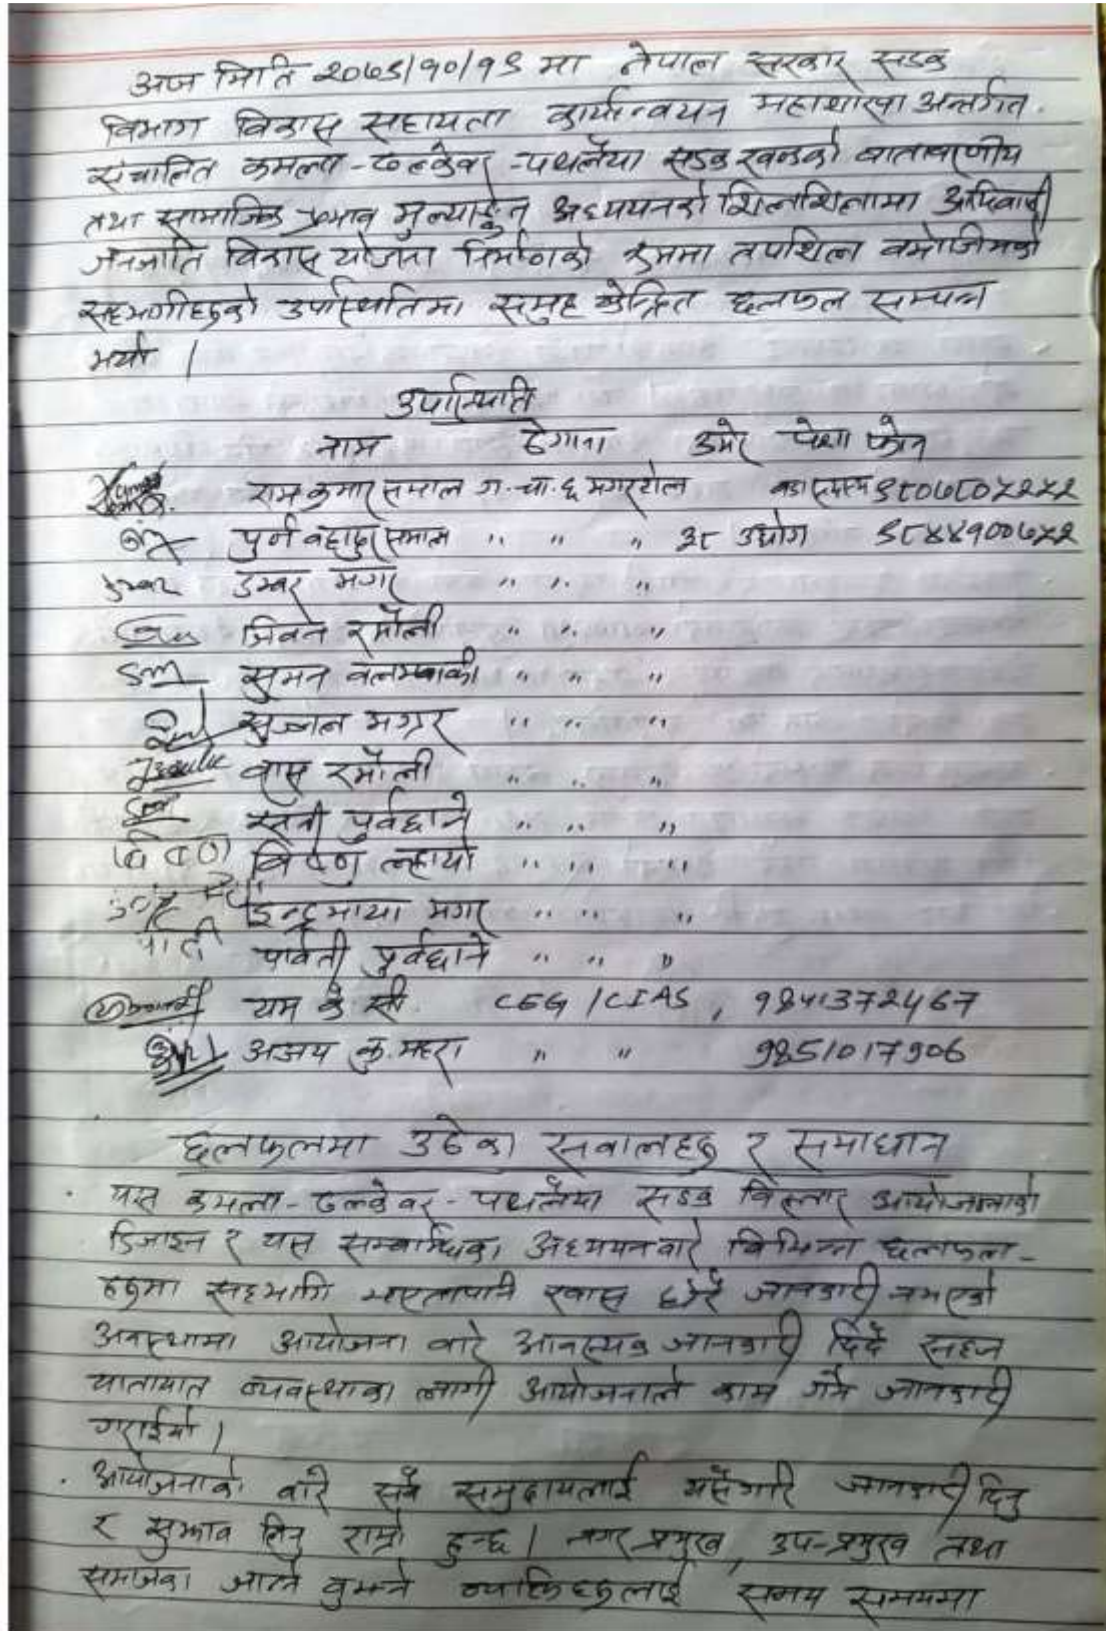 अज मिति २०७५/१०/१९ मा नेपाल सरकार सडक
विभाग विकास सहायता कार्यान्वयन महाशाखा अन्तर्गत
संचालित कमला-ढल्केवर-पथलैया सडक खण्डको वातावरणीय
तथा सामाजिक प्रभाव मुल्याङ्कन अध्ययनको शिलशिलामा आदिवासी
जनजाति विकास योजना निर्माणको क्रममा तपशिल बमोजिमको
सहभागीहरुको उपस्थितिमा समुह केन्द्रित छलफल सम्पन्न
भयो ।
उपस्थिति
नाम ठेगाना उमेर पेशा फोन
राम कुमार समाल ग.चा.६ मगरटोल वडा सदस्य ९८०७८०५२५२
पुर्ण बहादुर समाल " " " ३८ उद्योग ९८४४१००७५२
डम्बर डम्बर मगर " " "
जिवन रमौली " " "
सुमन " " "
सुजान मगर " " "
वासु रमौली " " "
पुर्वछाने " " "
विष्णु " " "
इन्द्रमाया मगर " " "
पार्वती पुर्वछाने " " "
यम के सी. CEG / CIAS, 9841372467
अजय कु. महरा " " 9851017906
छलफलमा उठेका सवालहरु र समाधान
· यस कमला-ढल्केवर-पथलैया सडक विस्तार आयोजनाको
डिजाइन र यस सम्बन्धिका अध्ययनबारे विभिन्न छलफल-
हरुमा सहभागि भएतापनि खास धेरै जानकारी नभएको
अवस्थामा आयोजना बारे आवस्यक जानकारी दिदै सहज
यातायात व्यवस्थाका लागी आयोजनाले काम गर्ने जानकारी
गराईयो ।
· आयोजनाको बारे सबै समुदायलाई यसैगरि जानकारी दिनु
र सुझाव लिनु राम्रो हुन्छ । नगर प्रमुख, उप-प्रमुख तथा
समाजका जान्ने बुझ्ने व्यक्तिहरुलाई समय समयमा